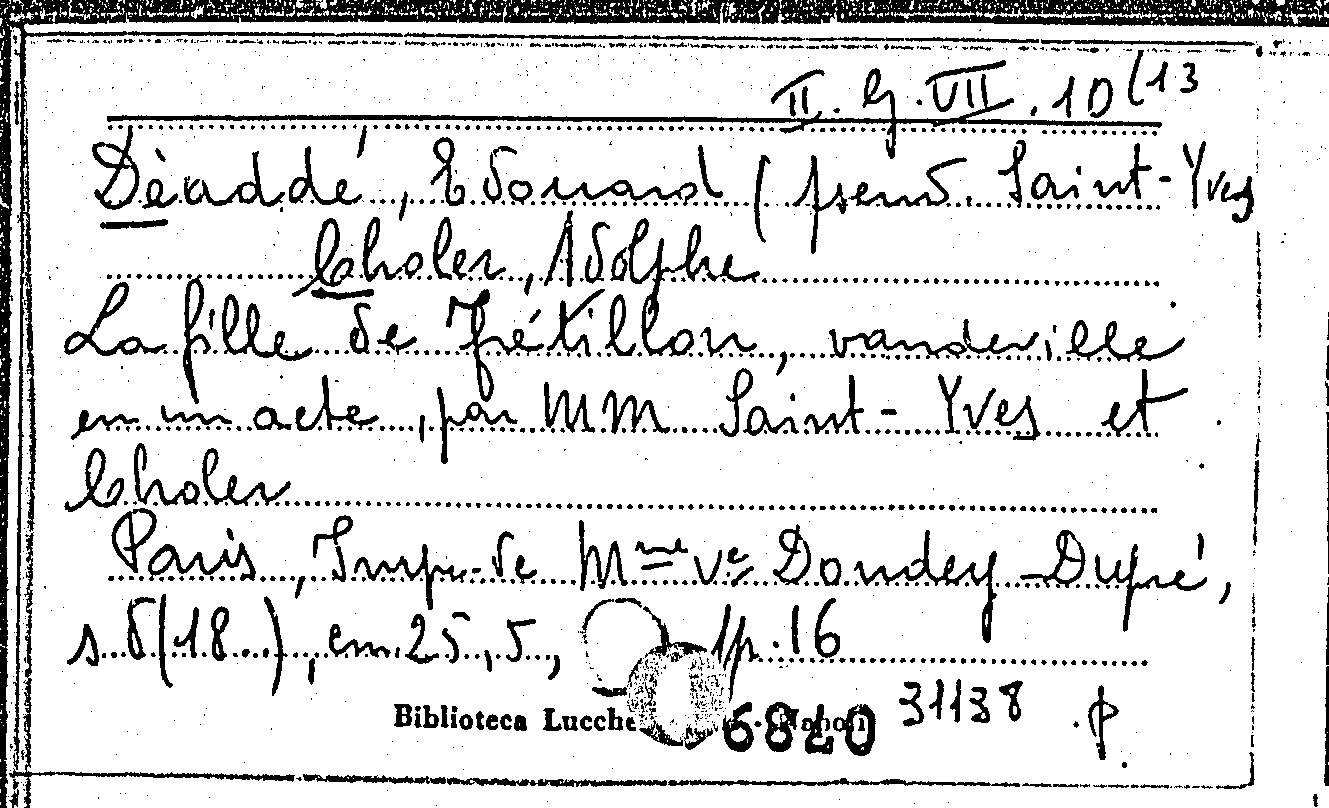 II. G. VII. 10(13
Dèaddé, Edouard (pseud. Saint-Yves
Choler, Adolphe
La fille de Frétillon, vaudeville
en un acte, par MM Saint-Yves et
Choler
Paris, Imp. de Mme Ve Dondey-Dupré,
s.d(18..), cm.25,5, p.16
Biblioteca Lucche
6820 31138 .P.